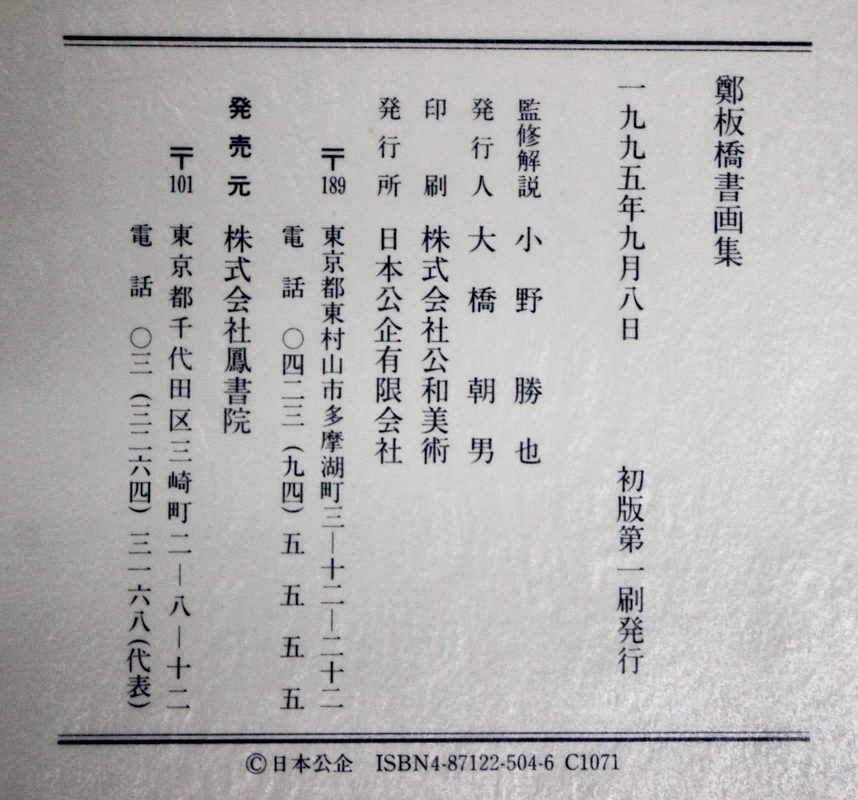 鄭板橋書画集
一九九五年九月八日　初版第一刷発行
監修解説　小野勝也
発行人　大橋朝男
印刷　株式会社公和美術
発行所　日本公企有限会社
〒189　東京都東村山市多摩湖町三―十二―二十二
電話　〇四二三（九四）五五五五
発売元　株式会社鳳書院
〒101　東京都千代田区三崎町二―八―十二
電話　〇三（三二六四）三一六八（代表）
©日本公企　ISBN4-87122-504-6 C1071